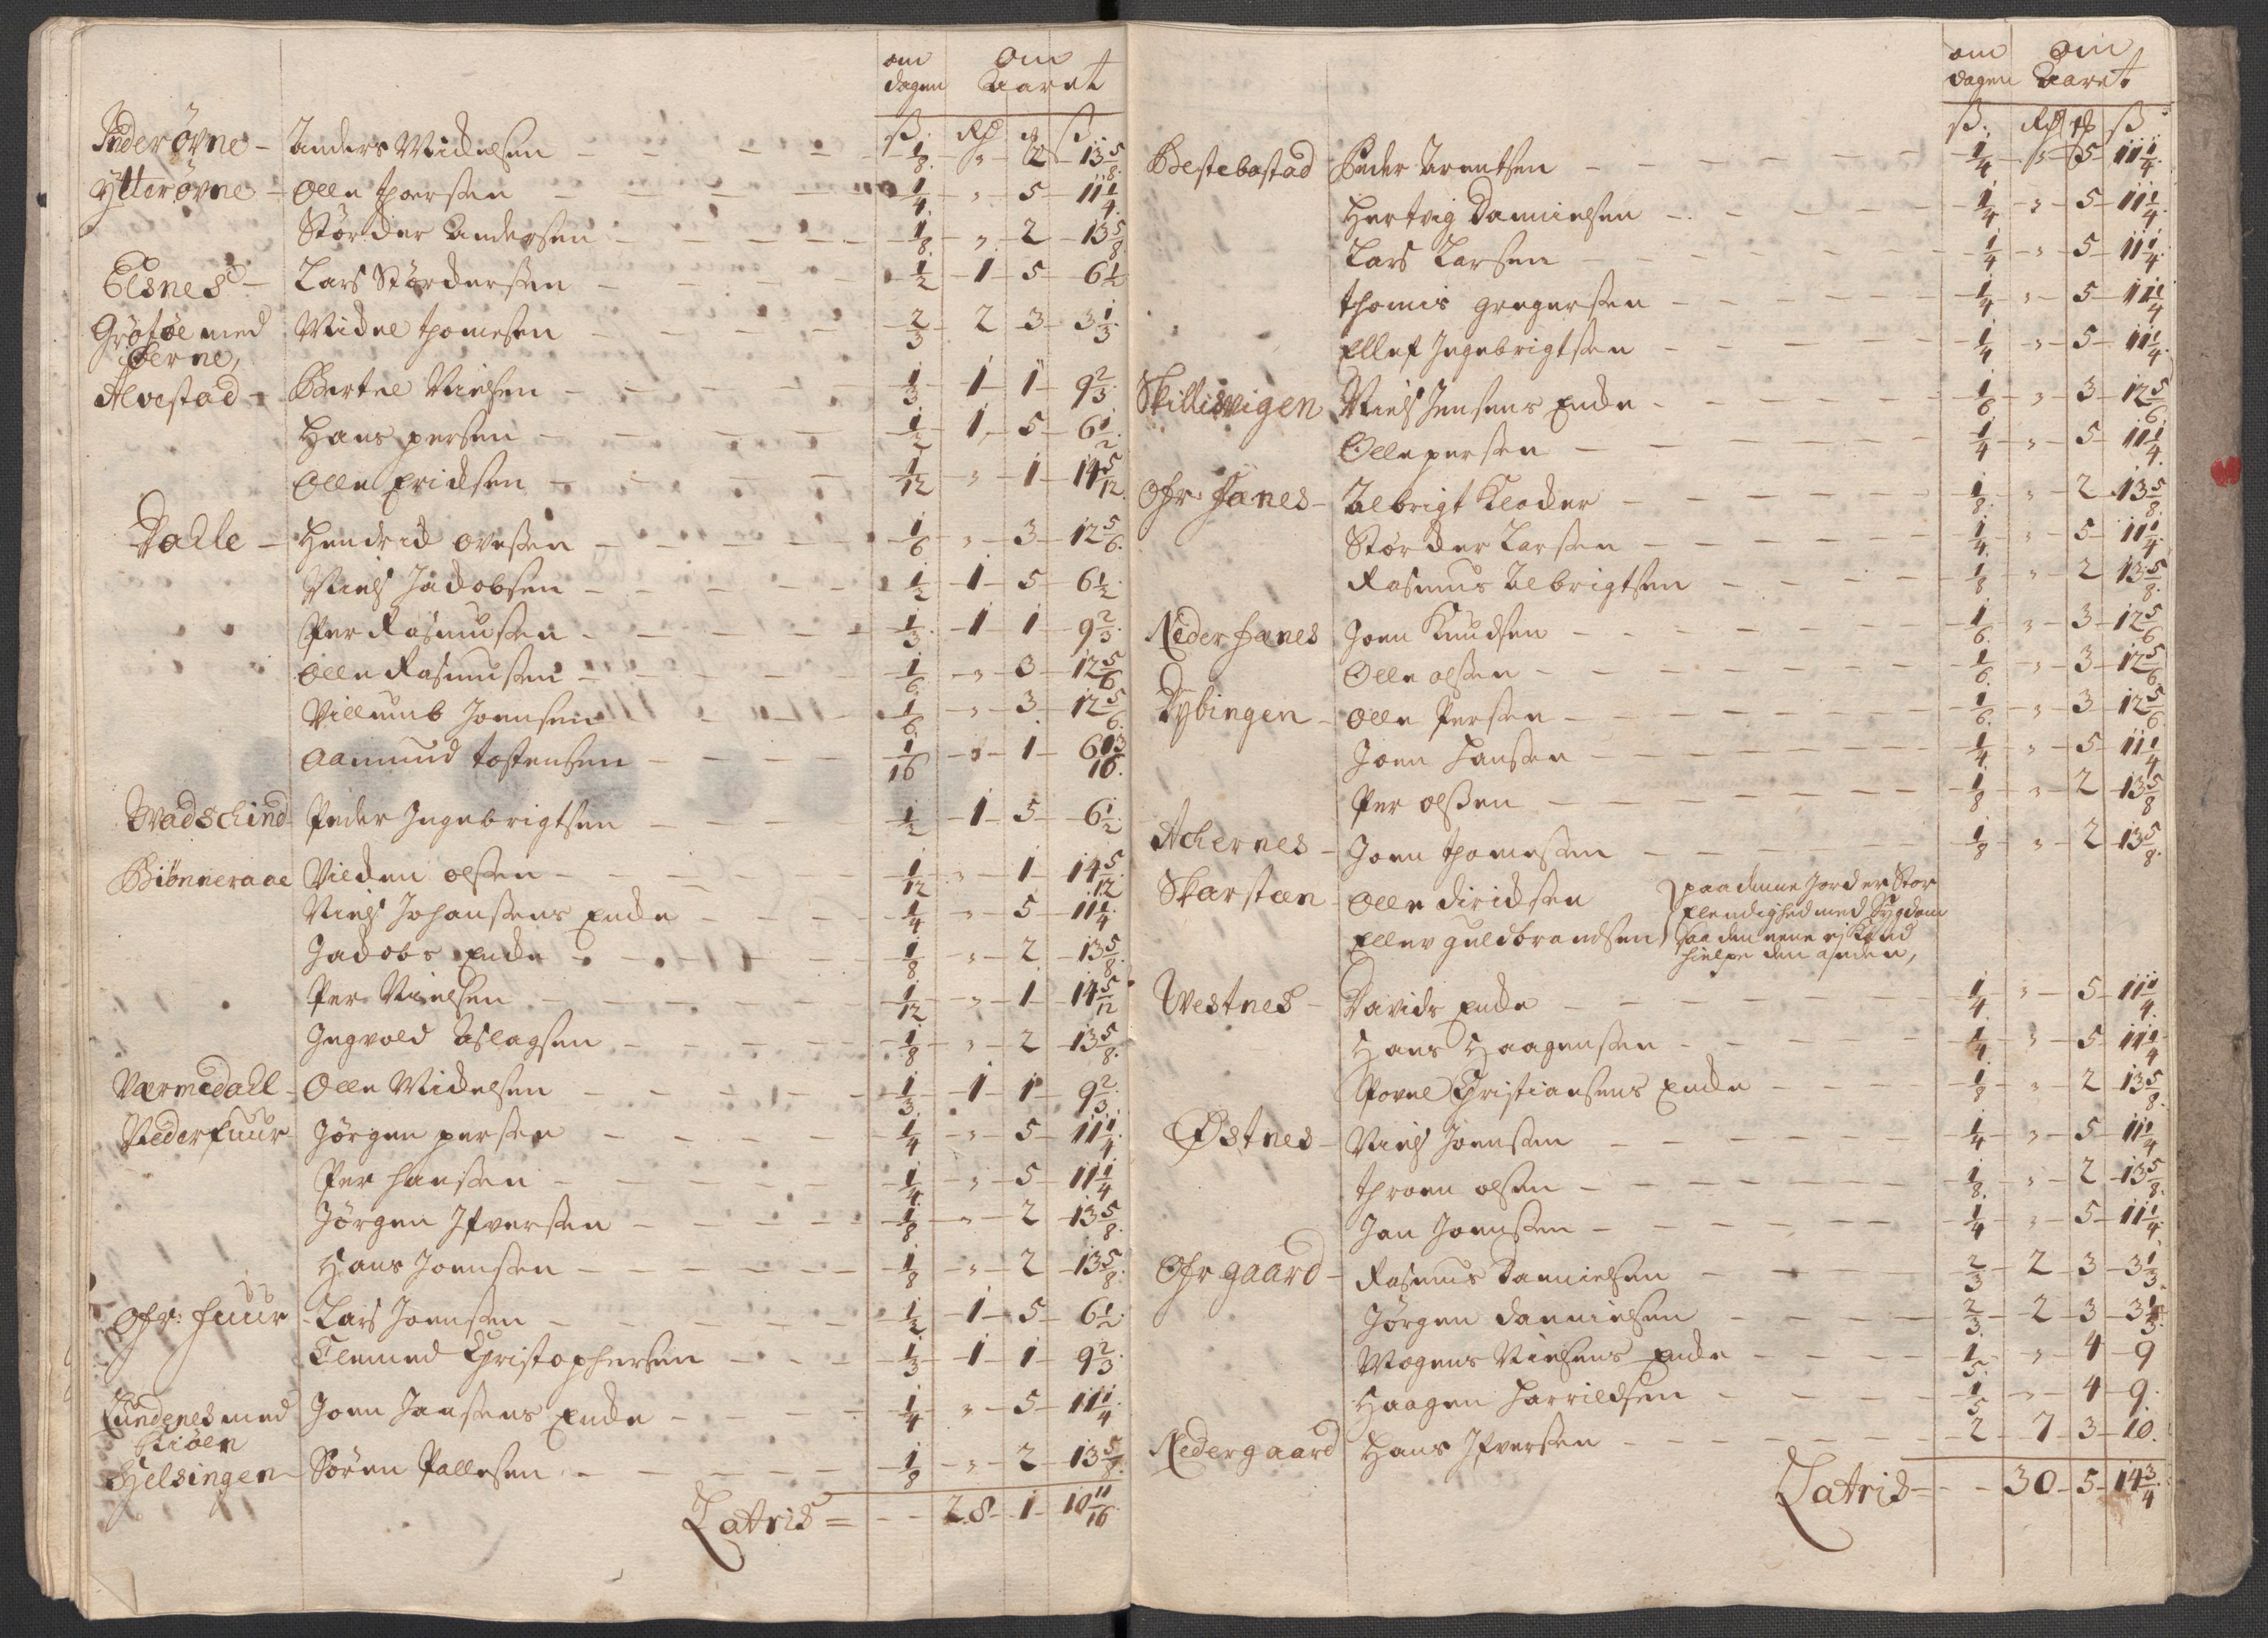 om om
dagen Aaret
ß. Rd ß
Inderøvne - Anders Michelsen - 1/8. " 2 - 13 5/8.
Ytterøvne - Olle thoersen - 1/4. " 5 - 11 1/4.
Størcker Andersen - 1/8. " 2 - 13 5/8.
Elsnes - Lars Størckersen - 1/2 - 1 5 - 6 1/2
Grøtøe med Michel thomesen - 2/3 2 3 - 3 1/3.
øerne,
Alvestad - Bertel Nielsen - 1/3 1 1 - 9 2/3.
Hans persen - 1/2 1 5 - 6 1/2.
Olle Erichsen - 1/12 " 1 - 14 5/12.
Dahle - Hendrich ovesen - 1/6 " 3 - 12 5/6.
Niels Jacobsen - 1/2 1 - 5 - 6 1/2.
Per Rasmusen - 1/3. - 1 1 - 9 2/3.
Olle Rasmusen - 1/6 - " - 3 - 12 5/6
Villumb Joensen - 1/6. " - 3 - 12 5/6.
Aamund tostensen - 1/16 " - 1 - 6 13/16.
Wadschind Peder Ingebrigtsen - 1/2 - 1 - 5 - 6 1/2
Biønneraae Nicken olsen - 1/12 " 1 - 14 5/12
Niels Johansens Encke - 1/4 - " 5 - 11 1/4.
Jacobs Encke - 1/8 " 2 - 13 5/8.
Per Nielsen - 1/12 - " - 1 - 14 5/12
Ingvold Aslagsen - 1/8 - " 2 - 13 5/8.
Værmedahl - Olle Michelsen - 1/3. - 1 1 - 9 2/3.
Nederfuur Jørgen persen - 1/4 - " 5 - 11 1/4.
Per hansen - 1/4 " - 5 - 11 1/4
Jørgen Ifversen - 1/8 " - 2 - 13 5/8.
Hans Joensen - 1/8 " - 2 - 13 5/8.
Ofr: fuur - Lars Joensen - 1/2 - 1 - 5 - 6 1/2.
Clemmed Christophersen - 1/3 - 1 - 1 - 9 2/3.
Lundenes med Joen Jansens Encke - 1/4 " - 5 - 11 1/4.
Kiøen
Helsingen - Sören Pallesen - 1/8 - " - 2 - 13 5/8.
Latris = - 28 - 1 - 10 11/16
om om
dagen Aaret
ß. Rd ß
Bestebostad Peder Arentsen - 1/4 " 5 11 1/4.
Hertvig Dannielsen - 1/4 - " 5 - 11 1/4.
Lars Larsen - 1/4 - " 5 - 11 1/4.
thomis gregersen - 1/4 " 5 - 11 1/4
Ellef Ingebrigtsen - 1/4 - " 5 - 11 1/4.
Skillesvigen Niels Jensens Encke - 1/6 - " 3 - 12 5/6
Olle persen - 1/4 - " 5 - 11 1/4.
Ofr: fanes - Albrigt Klocker - 1/8. " 2 - 13 5/8.
Størcker Larsen - 1/4. " 5 - 11 1/4.
Rasmus Albrigtsen - 1/8 " 2 13 5/8.
Neder fanes Joen Knudsen - 1/6. " 3 - 12 5/6
Olle olsen - 1/6. " 3 - 12 5/6.
Dybingen - Olle Persen - 1/6. " 3 - 12 5/6
Joen Hansen - 1/4. " 5 - 11 1/4
Per olsen - 1/8 - " 2 - 13 5/8
Achernes - Joen thomesen - 1/8 " 2 - 13 5/8.
Skarstæn - Olle dirichsen paa denne Jord er Stor
Elendighed med Sygdom
Ellev guldbrandsen saa den eene ej Kand
hielpe den anden,
Westnes - Davids Encke - 1/4. " 5 - 11 1/4.
Hans Haagensen - 1/4. " 5 - 11 1/4
Povel Christiansens Encke - 1/8 " 2 - 13 5/8.
Østnes - Niels Joensen - 1/4 " 5 - 11 1/4
throen olsen - 1/8. " 2 - 13 5/8.
Jan Joensen - 1/4 " 5 - 11 1/4.
Ofr gaard - Rasmus Dannielsen - 2/3 - 2 3 - 3 1/3.
Jørgen dannielsen - 2/3. - 2 - 3 - 3 1/3.
Mogens Nielsens Encke - 1/5. " - 4 - 9
Haagen Harrildsen - 1/5 " - 4 - 9.
Nedergaard Hans Ifversen - 2 - 7 - 3 - 10.
Latris - - 30 - 5 - 14 3/4